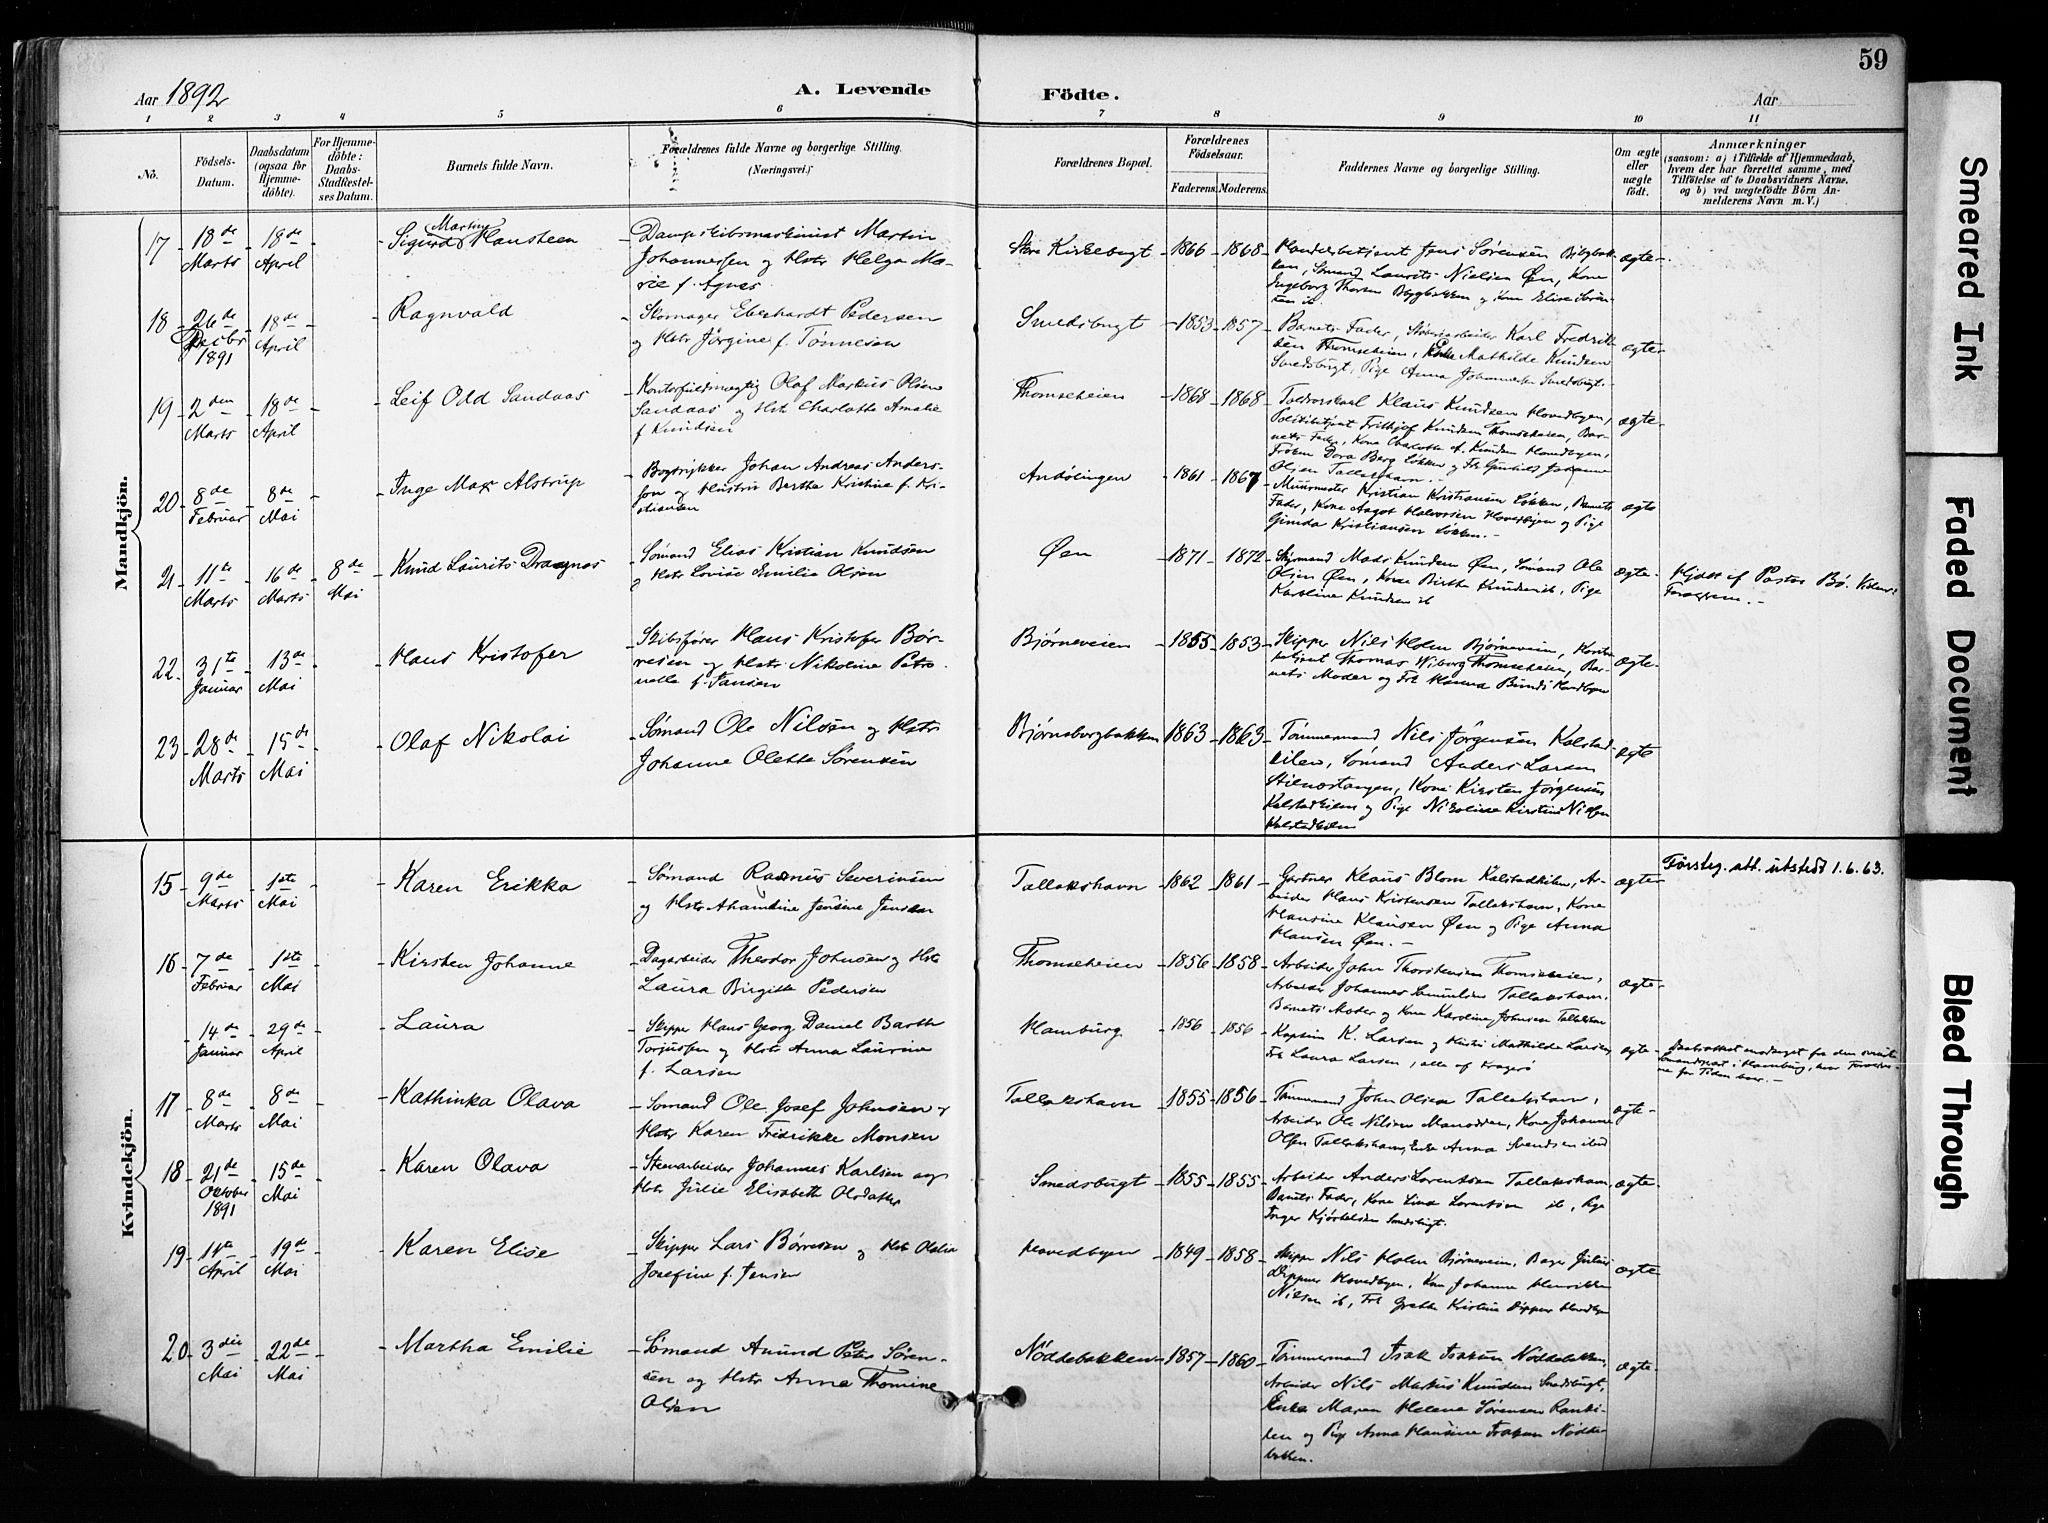 59
Aar 1892
A. Levende Födte.
Aar
1 2 3 4 5 6 7 8 9 10 11
No.
Födsels-Datum.
Daabsdatum (ogsaa för Hjemmedöbte).
For Hjemmedöbte: Daabs-Stadfæstelses Datum.
Barnets fulde Navn.
Forældrenes fulde Navne og borgerlige Stilling. (Næringsvei.)
Forældrenes Bopæl.
Forældrenes Födselsaar.
Faderens. Moderens.
Faddernes Navne og borgerlige Stilling.
Om ægte eller uægte födt.
Anmærkninger
(saasom: a) i Tilfælde af Hjemmedaab, hvem der har forrettet samme, med Tilföielse af to Daabsvidners Navne, og b) ved uægtefödte Börn Anmelderens Navn m. V.)
Mandkjön.
17 18de Marts 18de April
Sigurd Martin Hansteen
Dampskibsmaskinist Martin
Johannessen og Hstr Helga Ma-
rie f. Agnes
Store Kirkebugt 1866 1868
Handelsbetjent Jens Sørensen
Sømand Laurits Nielsen Øen, Kone
Ingeborg og Kone Elise Søren-
sen ib
ægte
18 26de Decbr 1891 18de April
Ragnvald
Skomager Eberhardt Pedersen
og Hstr Jørgine f. Tønnesen
Smedsbugt 1853 1857
Barnets Fader, Karl Fredrik-
sen Thomseheien, Mathilde Knudsen
Smedsbugt, Pige Anna Johannesen Smedsbugt
ægte
19 2den Marts 18de April
Leif Odd Sandaas
Kontorfuldmægtig Olaf Markus Olsen
Sandaas og Hstr Charlotte Amalie
f Knudsen
Thomseheien 1868 1868
Klaus Knudsen Hovedbyen,
Politibetjent Frithjof Knudsen Thomseheien, Bar-
nets Fader, Kone Charlotte Knudsen Hovedbyen,
Frøken Dora Berg Løkken og Frk Gunhild
Olsen Tallakshavn.
ægte
20 8de Februar 8de Mai
Inge Max Alstrup
Bogtrykker Johan Andreas Anders-
sen og Hustru Bertha Kristine f. Kri-
stiansen
Andølingen 1861 1867
Muurmester Kristian Kristiansen Løkken, Barnets
Fader, Kone Aagot Halvorsen Hovedbyen og Pige
Ginda Kristiansen Løkken.
ægte
21 11te Marts 16de Marts 8de Mai
Knud Laurits Dragnæs
Sømand Elias Kristian Knudsen
og Hstr Lovise Emilie Olsen
Øen 1871 1872
Styrmand Mads Knudsen Øen, Sømand Ole
Olsen Øen, Kone Birthe Knudsen ib, Pige
Karoline Knudsen ib
ægte
Hjdøbt af Pastor Bø.
22 31te Januar 13de Mai
Hans Kristofer
Skibsfører Hans Kristofer Bør-
resen og Hstr Nikoline Petro-
nelle f. Jansen
Bjørneveien 1855 1853
Skipper Nils Holm Bjørneveien,
Thomas Wiborg Thomseheien, Bar-
nets Moder og Frk Hanna
ægte
23 28de Marts 15de Mai
Olaf Nikolai
Sømand Ole Nilsen og Hstr
Johanne Olette Sørensen
Bjørnsborgbakken 1863 1863
Tømmermand Nils Jørgensen Kalstad-
kilen, Sømand Anders Larsen
Stilnestangen, Kone Kirsten Jørgensen
Kalstadkilen og Pige Nikoline Kirstine Nilsen
Kalstadkilen
ægte
Kvindekjön.
15 9de Marts 1ste Mai
Karen Erikka
Sømand Rasmus Severinsen
og Hstr Jensine Jensen
Tallakshavn 1862 1861
Gartner Klaus Blom Kalstadkilen, Ar-
beider Hans Kristensen Tallakshavn, Kone
Hansine Klausen Øen og Pige Anna
Hansen Øen.
ægte
Førsteg. att. utstedt 1.6.63.
16 7de Februar 1ste Mai
Kirsten Johanne
Dagarbeider Theodor Johnsen og Hstr
Laura Birgitte Pedersen
Thomseheien 1856 1858
Arbeider John Thorstensen Thomseheien,
Arbeider Johannes Samuelsen Tallakshavn,
Barnets Moder og Kone Karoline Johnsen Tallakshavn
ægte
14de Januar 29de April
Laura
Skipper Hans Georg Daniel Barth
Torjussen og Hstr Anna Laurine
f. Larsen
Hamburg 1856 1856
Kaptein K. Larsen og Hustru Mathilde Larsen,
Frk Laura Larsen, alle af Kragerø
ægte
Daabsattest modtaget fra den norske
Sømandsprest i Hamburg, hvor Forældre-
ne for Tiden boer.
17 8de Marts 8de Mai
Kathinka Olava
Sømand Ole Josef Johnsen og
Hstr Karen Fredrikke Monsen
Tallakshavn 1855 1856
Tømmermand John Olsen Tallakshavn,
Arbeider Ole Nilsen Kone Johanne
Olsen Tallakshavn, Enke Anna Svendsen ibid
ægte
18 21de Oktober 1891 15de Mai
Karen Olava
Stenarbeider Johannes Karlsen og
Hstr Julie Elisabeth Olsdatter
Smedsbugt 1855 1855
Arbeider Anders Lorentsen Tallakshavn,
Barnets Fader, Kone Lina Lorentsen ib, Pige
Inger Kjørkelsen Smedsbugt.
ægte
19 11te April 19de Mai
Karen Elise
Skipper Lars Børresen og Hstr
Josefine f. Jensen
Hovedbyen 1849 1858
Skipper Nils Holm Bjørneveien, Bager Julius
Dippner Hovedbyen, Kone Johanne Henrikke
Nilsen ib, Frk Grethe Kristine Dippner Hovedbyen
ægte
20 3die Mai 22de Mai
Martha Emilie
Sømand Anund Peter Søren-
sen og Hstr Anne Thomine
Olsen
Nøddebakken 1857 1860
Tømmermand Isak Isaksen Nøddebakken,
Arbeider Nils Markus Knudsen Smedsbugt,
Enke Maren Helene Sørensen
og Pige Anna Hansine Isaksen Nødde-
bakken.
ægte
Smeared Ink
Faded Document
Bleed Through